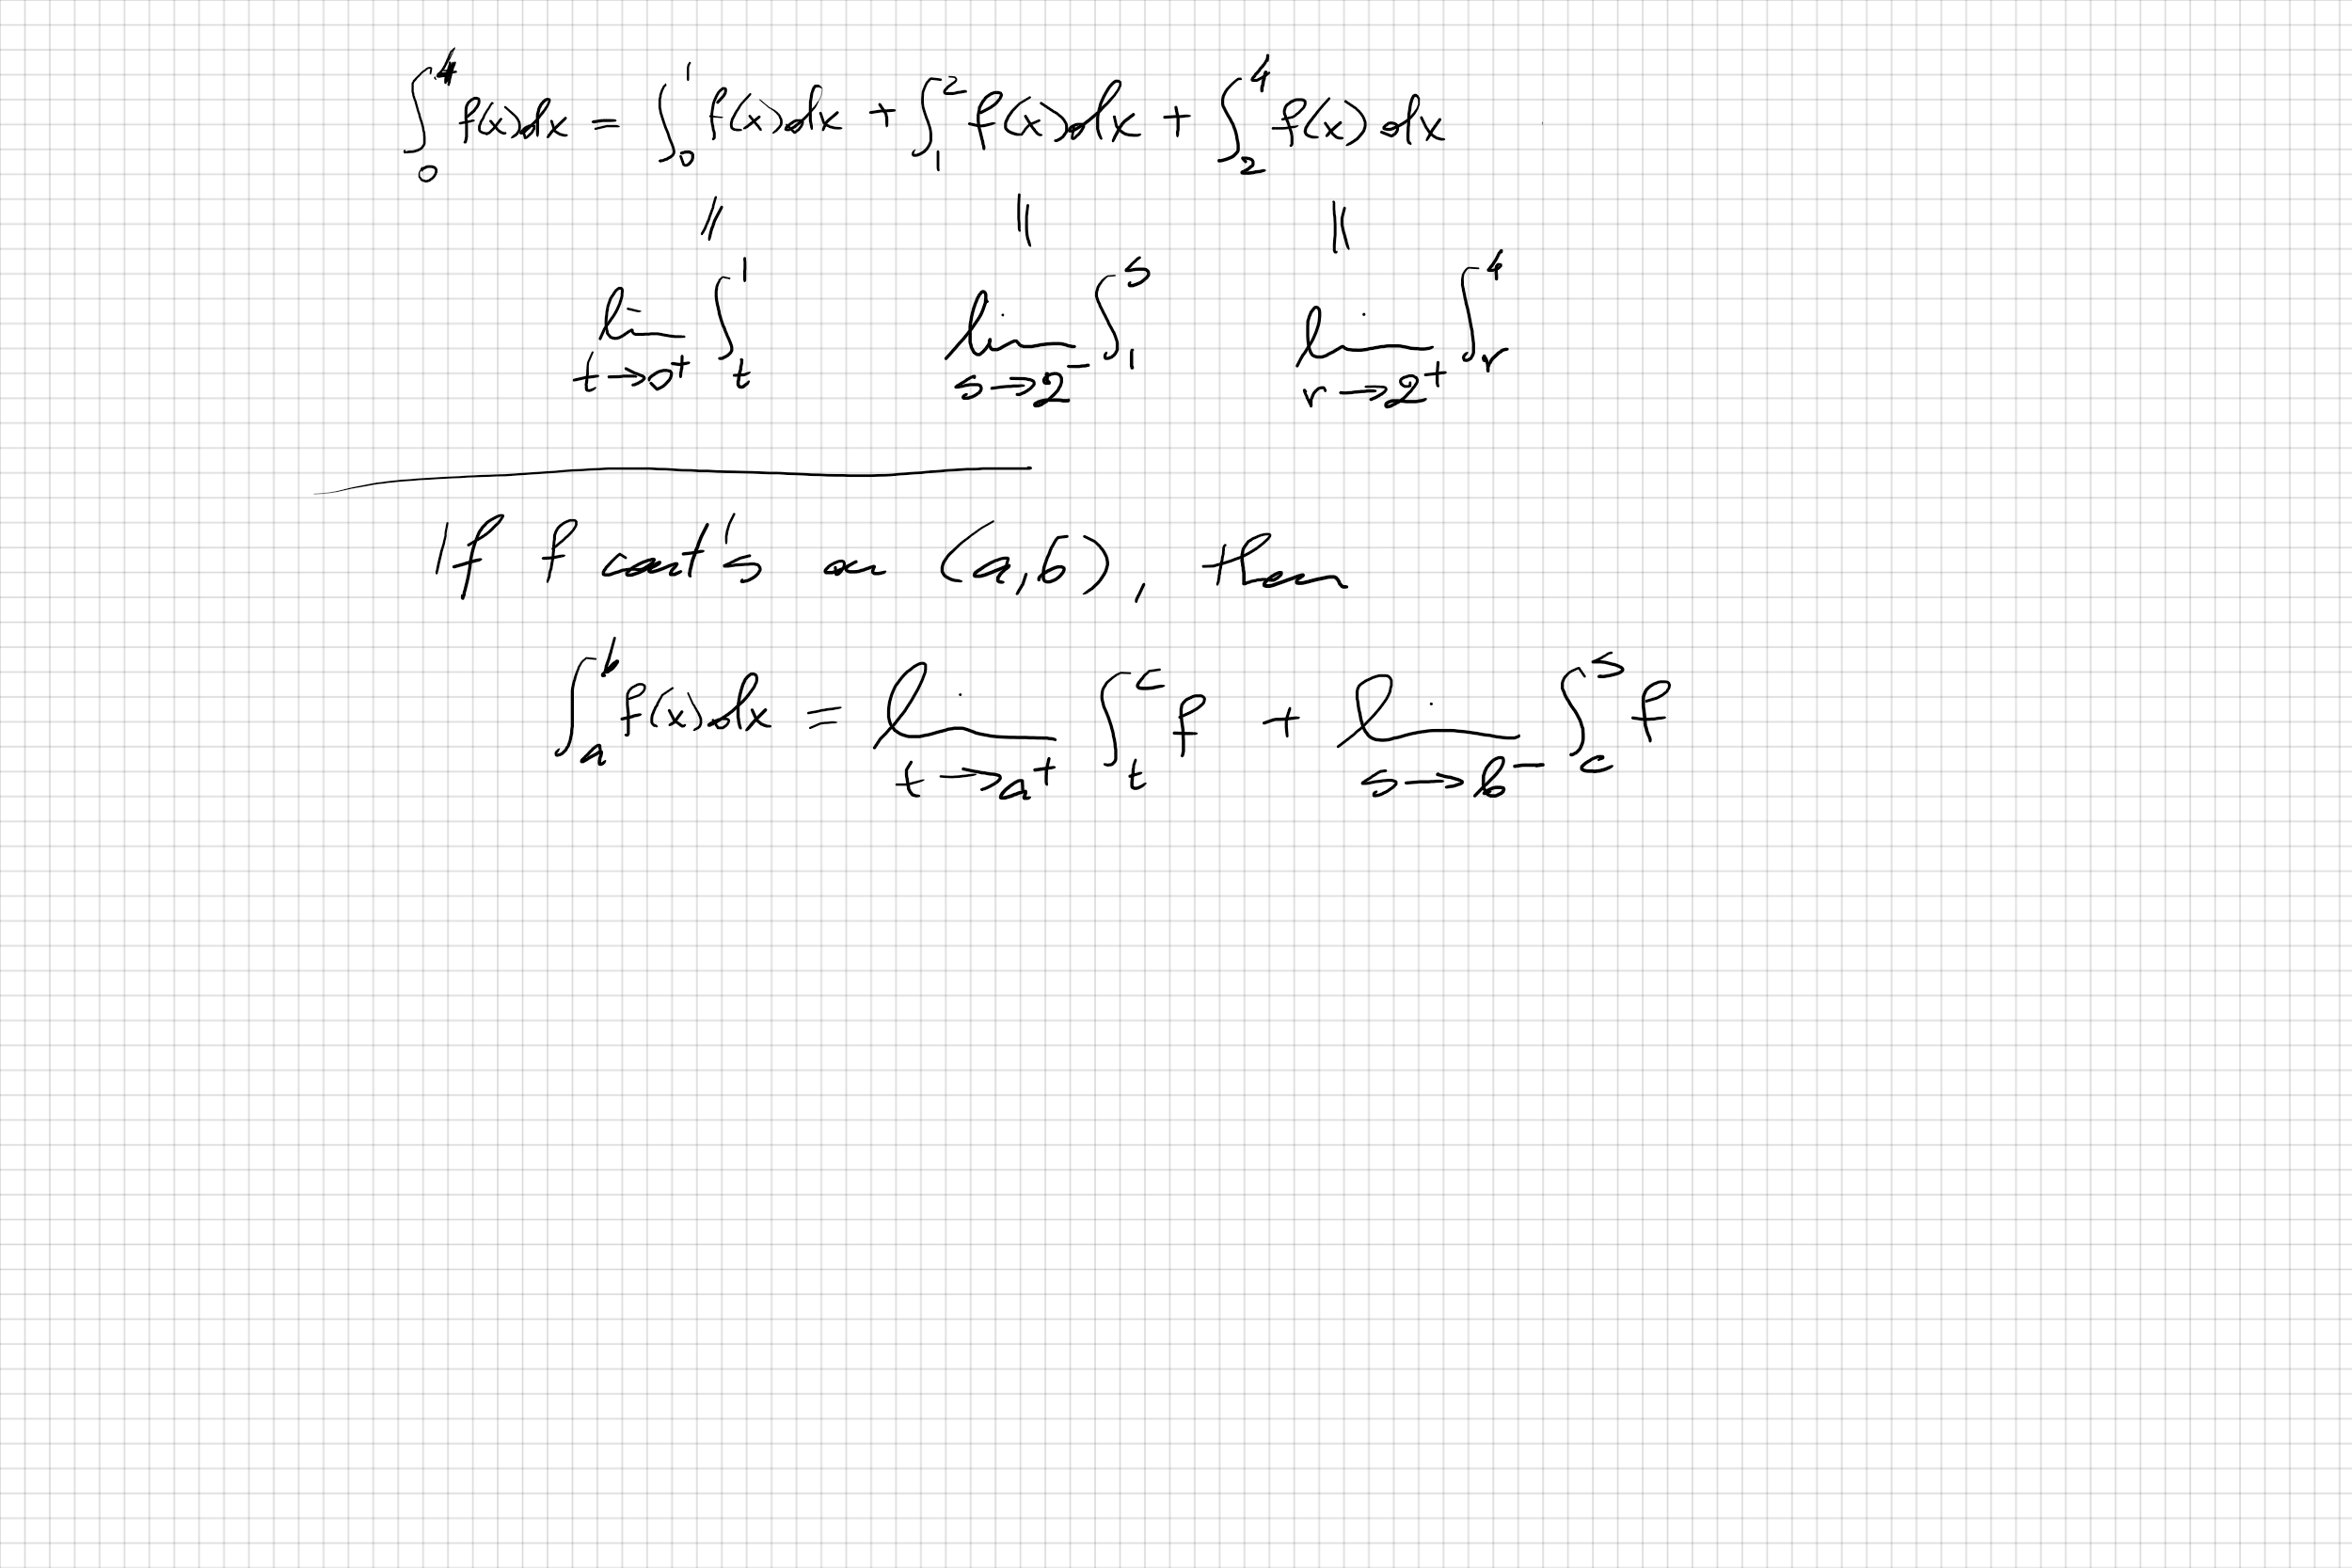 ∫₀⁴ f(x)dx = ∫₀¹ f(x)dx + ∫₁² f(x)dx + ∫₂⁴ f(x)dx
|| || ||
lim_{t→0⁺} ∫_t^1 lim_{s→2⁻} ∫_1^s lim_{r→2⁺} ∫_r^4
If f cont's on (a,b), then
∫_a^b f(x)dx = lim_{t→a⁺} ∫_t^c f + lim_{s→b⁻} ∫_c^s f